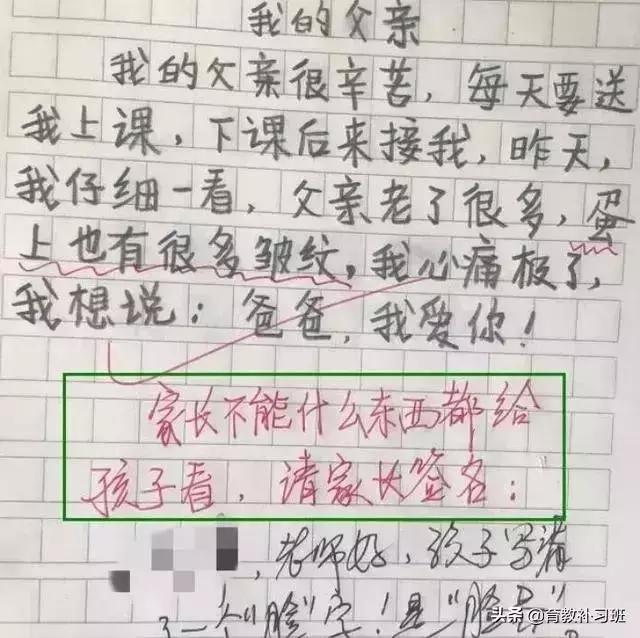 我的父亲
我的父亲很辛苦，每天要送
我上课，下课后来接我，昨天，
我仔细一看，父亲老了很多，蛋
上也有很多皱纹，我心痛极了，
我想说：爸爸，我爱你！
家长不能什么东西都给
孩子看，请家长签名：
，老师好，孩子写漏
了一个"脸"字！是"脸蛋"
头条 @育教补习班